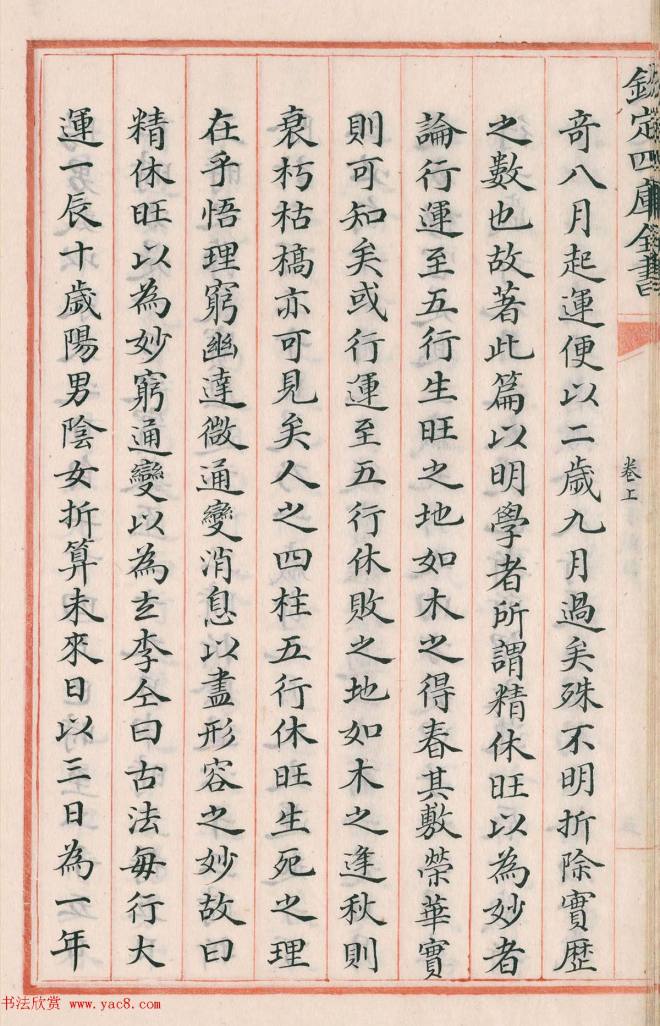 欽定四庫全書
卷上
奇八月起運便以二歲九月過矣殊不明折除實歴
之數也故著此篇以明學者所謂精休旺以為妙者
論行運至五行生旺之地如木之得春其敷榮華實
則可知矣或行運至五行休敗之地如木之逢秋則
衰朽枯槁亦可見矣人之四柱五行休旺生死之理
在乎悟理窮幽達微通變消息以盡形容之妙故曰
精休旺以為妙窮通變以為玄李仝曰古法每行大
運一辰十歲陽男陰女折算未來日以三日為一年
书法欣赏 www.yac8.com